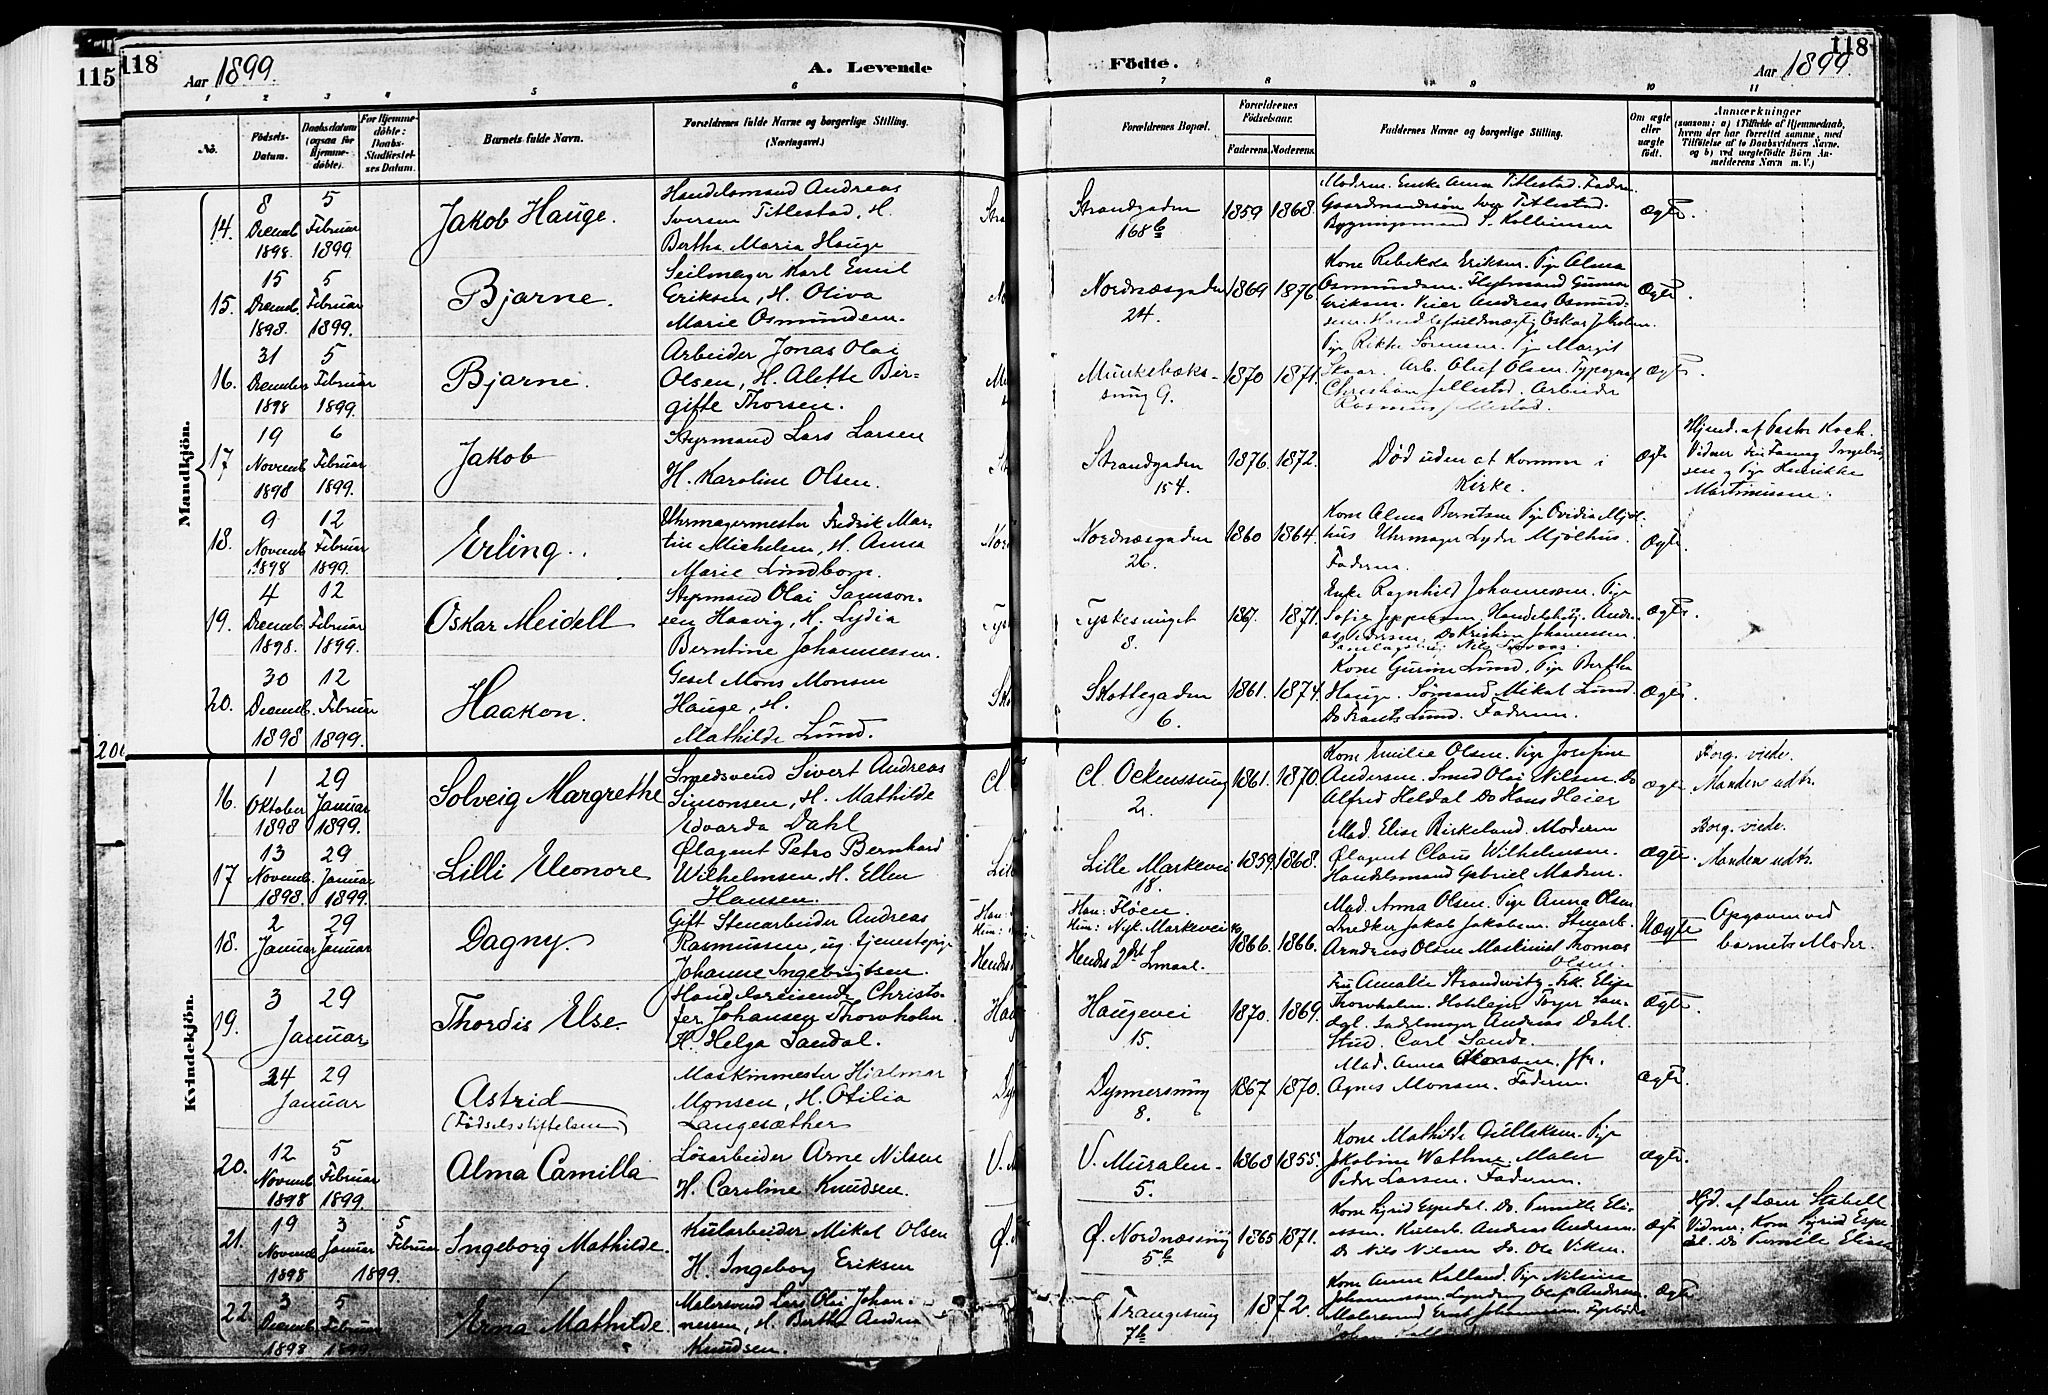 115 118
Aar 1899.
A. Levende
Födte.
118
Aar 1899.
1 2 3 4 5 6 7 8 9 10 11
No.
Födsels-
Datum.
Daabsdatum
(ogsaa for
Hjemme-
döbte).
For Hjemme-
döbte:
Daabs-
Stadfæstel-
ses Datum.
Barnets fulde Navn.
Forældrenes fulde Navne og borgerlige Stilling.
(Næringsvei.)
Forældrenes Bopæl.
Forældrenes
Födselsaar.
Faderens. Moderens.
Faddernes Navne og borgerlige Stilling.
Om ægte
eller
uægte
födt.
Anmærkninger
(saasom: a) i Tilfælde af Hjemmedaab,
hvem der har forrettet samme, med
Tilföielse af to Daabsvidners Navne,
og b) ved uægtefödte Börn An-
melderens Navn m. V.)
Mandkjön.
14.
8
Decemb.
1898.
5
Februar
1899.
Jakob Hauge.
Handelsmand Andreas
Iversen Titlestad, H.
Bertha Maria Hauge
Strandgaden
168 b
1859 1868.
Moderen. Enke Anna Titlestad. Faderen.
Gaardmandssøn Iver Titlestad.
Bygningsmand S. Kolbeinsen
Ægte.
15.
15
Decemb.
1898.
5
Februar
1899.
Bjarne.
Seilmager Karl Emil
Eriksen, H. Oliva
Marie Osmundsen.
Nordnæsgaden
24.
1869 1876
Kone Rebekka Eriksen. Pige Alma
Osmundsen. Fløtmand Gunnar
Eriksen. Veier Andreas Osmund-
sen. Handelsfuldmægtig Oskar Jakobsen.
Ægte.
16.
31
December
1898
5
Februar
1899.
Bjarne.
Arbeider Jonas Olai
Olsen, H. Alette Bir-
gitte Thorsen.
Munkebæks-
smug 9.
1870 1871.
Pige Rikke Sørensen. Pige Margit
Skaar. Arb. Oluf Olsen. Typograf
Christian Jellestad. Arbeider
Rasmus Jellestad.
Ægte.
17
19
Novemb.
1898
6
Februar
1899.
Jakob
Styrmand Lars Larsen
H. Karoline Olsen.
Strandgaden
154.
1876. 1872.
Død uden at komme i
Kirke.
Ægte
Hjemd. af Pastor Koch.
Vidner Frk Fanny Ingebrig
sen og Pige Henrikke
Martinussen.
18.
9
Novemb.
1898
12
Februar
1899.
Erling.
Uhrmagermester Fredrik Mar-
tin Michelsen, H. Anna
Marie Lindborn.
Nordnæsgaden
26.
1860 1864.
Kone Alma Berntsen Pige Ovidia Mjøl-
hus Uhrmager Lyder Mjølhus.
Faderen.
Ægte.
19.
4
Decemb.
1898.
12
Februar
1899.
Oskar Meidell
Styrmand Olai Samson-
sen Haavig, H. Lydia
Berntine Johannessen.
Tyskesmuget
8.
1867. 1871.
Enke Ragnhild Johannessen. Pige
Sofie Jeppesen. Handelsbetj. Andre-
as Pedersen, Do Kristian Johannessen
Ægte
20.
30
Decemb.
1898
12
Februar
1899.
Haakon.
Gesel Mons Monsen
Hauge, H.
Mathilde Lund.
Skottegaden
6.
1861. 1874.
Kone Gurine Lund, Pige Bertha
Hauge. Sømand Mikal Lund.
Do Frants Lund. Faderen.
Ægte
Kvindekjön.
16.
1
Oktober
1898
29
Januar
1899.
Solveig Margrethe
Smedsvend Sivert Andreas
Simonsen, H. Mathilde
Edvarda Dahl
Cl. Ockenssmug
2.
1861. 1870.
Kone Emilie Olsen. Pige Josefine
Andersen. Smed Olai Nilsen. Do
Alfred Heldal Do Hans Heier
Ægte
Borg. viede.
Manden udtr.
17
13
Novemb.
1898.
29
Januar
1899.
Lilli Eleonore
Ølagent Petro Bernhard
Wilhelmsen, H. Ellen
Hansen.
Lille Markevei
18.
1859. 1868.
Mad. Elise Birkeland. Moderen
Ølagent Claus Wilhelmsen.
Handelsmand Gabriel Madsen.
Ægte.
Borg. viede.
Manden udtr.
18.
2
Januar
29
Januar
Dagny.
Gift Stenarbeider Andreas
Rasmussen, ug. tjenestepige
Johanne Ingebrigtsen.
Han: Fløen.
Hun: Nyk. Markevei 19
Hendes 2det Lmaal.
1866. 1866.
Mad. Anna Olsen. Pige Anna Olsen
Snedker Jakob Jakobsen. Stenarb.
Arndreas Olsen Maskinist Thomas
Olsen.
Uægte
Opgaven ved
barnets Moder.
19.
3
29
Januar
Thordis Else.
Handelsreisende Christo-
fer Johansen Thornholm
H. Helga Sandal.
Haugevei
15.
1870. 1869.
Fru Amalie Strandvitz. Frk. Elise
Thornholm. Hoteleier Torger San-
dal. Sadelmager Andreas Dahl.
Stud. Carl Sande.
Ægte.
24
29
Januar
Astrid
(Fødselsstiftelsen)
Maskinmester Hjalmar
Monsen, H. Otilia
Langesæther
Dynnersmug
8.
1867 1870.
Mad. Anna Monsen. Jfr.
Agnes Monsen. Faderen.
Ægte.
20.
12
Novemb.
1898
5
Februar
1899.
Alma Camilla
Løsarbeider Arne Nilsen
H. Caroline Knudsen.
V. Muralen-
5.
1868 1855.
Kone Mathilde Gullaksen. Pige
Jakobine Wathne. Maler
Peder Larsen. Faderen.
Ægte.
21.
19
Novemb.
1898
3
Januar
5
Februar
1899.
Ingeborg Mathilde.
Kularbeider Mikal Olsen
H. Ingeborg Eriksen
Ø. Nordnæssmug
5 b
1865 1871.
Kone Sigrid Espedal. Do. Pernille Eli-
assen. Kularb. Andreas Andersen.
Do Nils Nilsen Do. Ole Viken.
Ægte
Hjd. af Lærer Stabell
Vidner. Kone Sigrid Espe-
dal. Do Pernille Eliass
22.
3
Decemb.
1898
5
Februar
1899
Erna Mathilde.
Malersvend Lars Olai Johan-
nessen, H. Bertha Andrea
Knudsen.
Trangesmug
7 b
1872.
Kone Anne Kalland. Pige Nilsine
Johannessen. Olaf Andersen
Malersvend Johannessen.
Ægte.